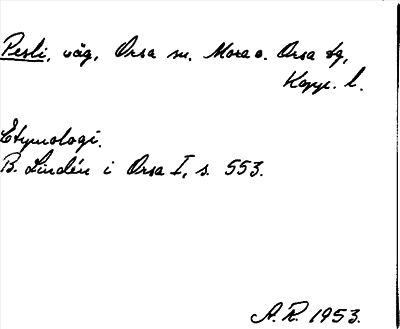 Pesli, väg, Orsa sn. Mora o. Orsa tg,
Kopp. l.
Etymologi.
B. Lindén i Orsa I, s. 553.
A. R. 1953.